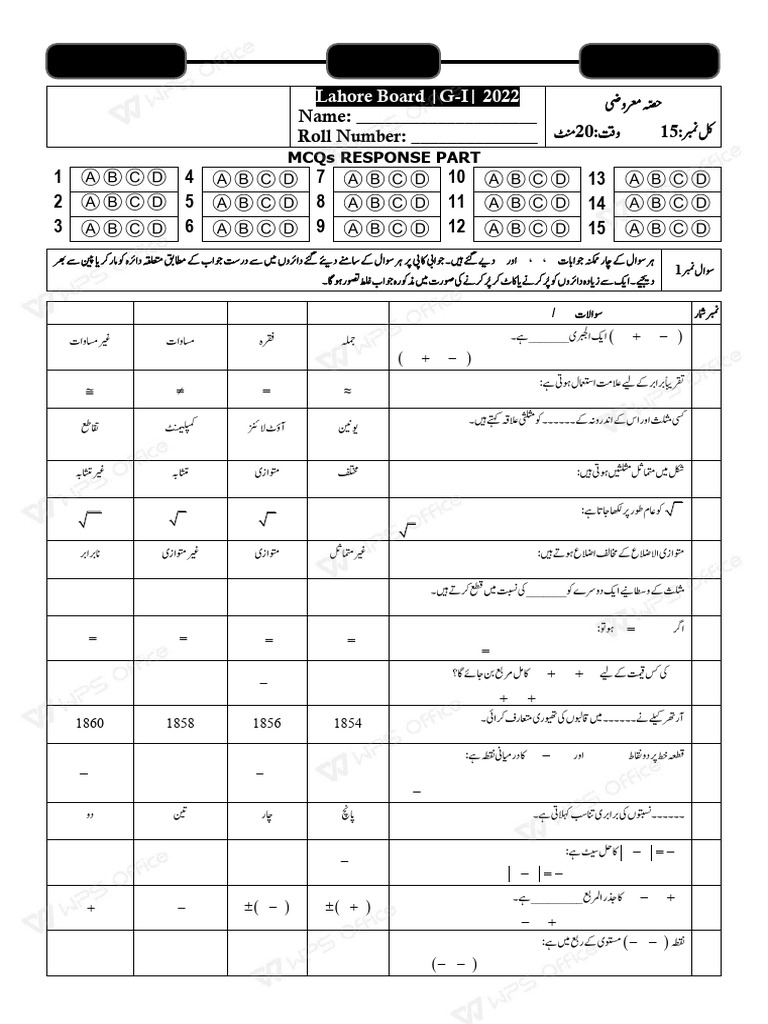 Lahore Board |G-I| 2022
حصّہ معروضی
Name: ____________________
Roll Number: ______________
کل نمبر:15 وقت:20منٹ
MCQs RESPONSE PART
1 A B C D 4 A B C D 7 A B C D 10 A B C D 13 A B C D
2 A B C D 5 A B C D 8 A B C D 11 A B C D 14 A B C D
3 A B C D 6 A B C D 9 A B C D 12 A B C D 15 A B C D
سوال نمبر1
ہر سوال کے چار ممکنہ جوابات ، ، اور دیے گئے ہیں۔ جوابی کاپی پر ہر سوال کے سامنے دیئے گئے دائروں میں سے درست جواب کے مطابق متعلقہ دائرہ کو مارکر یا پین سے بھر
دیجیے۔ ایک سے زیادہ دائروں کو پُر کرنے یا کاٹ کر پُر کرنے کی صورت میں مذکورہ جواب غلط تصور ہوگا۔
نمبر شمار سوالات /
( + − ) ایک الجبری ______ ہے۔ جملہ فقرہ مساوات غیر مساوات
( + − )
تقریباً برابر کے لیے علامت استعمال ہوتی ہے: ≈ = ≠ ≅
کسی مثلث اور اس کے اندرونہ کے ------ کو مثلثی علاقہ کہتے ہیں۔ یونین آؤٹ لائنز کمپلیمنٹ تقاطع
شکل میں متماثل مثلثیں ہوتی ہیں: مختلف متوازی متشابہ غیر متشابہ
√ کو عام طور پر لکھا جاتا ہے: √ √ √
√
متوازی الاضلاع کے مخالف اضلاع ہوتے ہیں: غیر متماثل متوازی غیر متوازی نابرابر
مثلث کے وسطانیے ایک دوسرے کو ______ کی نسبت میں قطع کرتے ہیں۔
اگر = ہو تو: = = = =
=
کی کس قیمت کے لیے + + کامل مربع بن جائے گا؟ −
+ +
آرتھر کیلے نے ------ میں قالبوں کی تھیوری متعارف کرائی۔ 1854 1856 1858 1860
قطعہ خط پر دو نقاط اور − کا درمیانی نقطہ ہے: − −
−
------ نسبتوں کی برابری تناسب کہلاتی ہے۔ پانچ چار تین دو
| − |=− کا حل سیٹ ہے: −
| − |=−
+ − کا جذر المربع ________ ہے۔ ±( + ) ±( − ) − +
− +
نقطہ (− −) مستوی کے ربع میں ہے:
(− −)
WPS Office